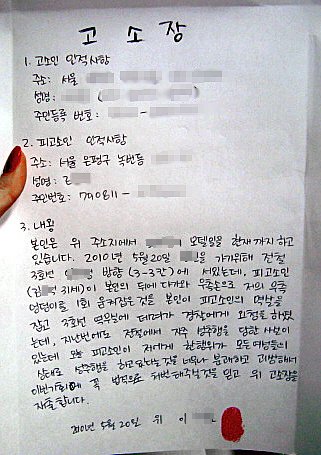 고 소 장
1. 고소인 인적사항
주소: 서울
성명: ( )
주민등록 번호: -
2. 피고소인 인적사항
주소: 서울 은평구 녹번동
성명: 김
주민번호: 790811 -
3. 내용
본인은 위 주소지에서 모텔일을 현재까지 하고
있습니다. 2010년 5월20일 을 가기위해 전철
3호선 ( 방향 (3-3칸)에 서있는데, 피고소인
(김 31세)이 본인의 뒤에 다가와 오른손으로 저의 우측
엉덩이를 1회 움켜잡는것을 본인이 피고소인의 멱살을
잡고 3호선 역무실에 데려가 경찰에게 신고를 하였
는데, 지난번에도 전철에서 자주 성추행을 당한 사실이
있는데 오늘 피고소인이 저에게 한행위가 모든 여성들의
상대로 성추행을 하고 다니는것을 너무나 불쾌하고 괴씸해서
이번기회에 꼭 법적으로 처벌해주실것을 믿고 위 고소장을
제출합니다.
2010년 5월 20일 위 이